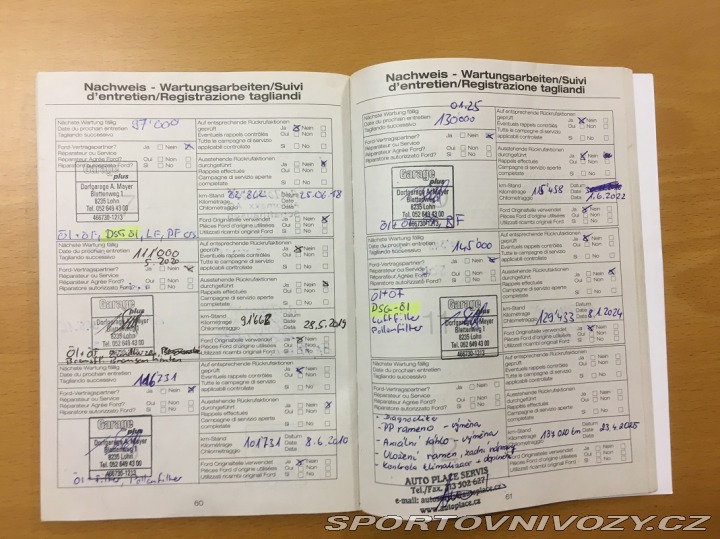 Nachweis - Wartungsarbeiten/Suivi
d'entretien/Registrazione tagliandi
Nächste Wartung fällig
Date du prochain entretien
Tagliando successivo
97'000
Auf entsprechende Rückrufaktionen
geprüft
Eventuels rappels contrôlés
Tutte le campagne di servizio
applicabili controllate
Ja Nein
Oui Non
Si No
Ford-Vertragspartner?
Réparateur ou Service
Réparateur Agréé Ford?
Riparatore autorizzato Ford?
Ja Nein
Oui Non
Si No
Ausstehende Rückrufaktionen
durchgeführt
Rappels effectués
Campagne di servizio aperte
completate
Ja Nein
Oui Non
Si No
Garage
plus
Dorfgarage A. Mayer
Blattenweg 1
8235 Lohn
Tel. 052 649 43 00
466730-1213
km-Stand
Kilométrage
Chilometraggio
Datum
Date
Data
25.06.18
Ford Originalteile verwendet
Pièces Ford d'origine utilisées
Utilizzati ricambi originali Ford
Ja Nein
Oui Non
Si No
Öl+ÖF, DSG Öl, LF, PF
Nächste Wartung fällig
Date du prochain entretien
Tagliando successivo
111'000
5.2020
Auf entsprechende Rückrufaktionen
geprüft
Eventuels rappels contrôlés
Tutte le campagne di servizio
applicabili controllate
Ja Nein
Oui Non
Si No
Ford-Vertragspartner?
Réparateur ou Service
Réparateur Agréé Ford?
Riparatore autorizzato Ford?
Ja Nein
Oui Non
Si No
Ausstehende Rückrufaktionen
durchgeführt
Rappels effectués
Campagne di servizio aperte
completate
Ja Nein
Oui Non
Si No
Garage
plus
Dorfgarage A. Mayer
Blattenweg 1
8235 Lohn
Tel. 052 649 43 00
466730-1213
km-Stand
Kilométrage
Chilometraggio
91'668
Datum
Date
Data
28.5.2019
Ford Originalteile verwendet
Pièces Ford d'origine utilisées
Utilizzati ricambi originali Ford
Ja Nein
Oui Non
Si No
Öl + ÖF
Nächste Wartung fällig
Date du prochain entretien
Tagliando successivo
116'731
Auf entsprechende Rückrufaktionen
geprüft
Eventuels rappels contrôlés
Tutte le campagne di servizio
applicabili controllate
Ja Nein
Oui Non
Si No
Ford-Vertragspartner?
Réparateur ou Service
Réparateur Agréé Ford?
Riparatore autorizzato Ford?
Ja Nein
Oui Non
Si No
Ausstehende Rückrufaktionen
durchgeführt
Rappels effectués
Campagne di servizio aperte
completate
Ja Nein
Oui Non
Si No
Garage
plus
Dorfgarage A. Mayer
Blattenweg 1
8235 Lohn
Tel. 052 649 43 00
466730-1213
km-Stand
Kilométrage
Chilometraggio
101'731
Datum
Date
Data
Ford Originalteile verwendet
Pièces Ford d'origine utilisées
Utilizzati ricambi originali Ford
Ja Nein
Oui Non
Si No
Öl + Filter Pollenfilter
60
Nachweis - Wartungsarbeiten/Suivi
d'entretien/Registrazione tagliandi
Nächste Wartung fällig
Date du prochain entretien
Tagliando successivo
01.25
130000
Auf entsprechende Rückrufaktionen
geprüft
Eventuels rappels contrôlés
Tutte le campagne di servizio
applicabili controllate
Ja Nein
Oui Non
Si No
Ford-Vertragspartner?
Réparateur ou Service
Réparateur Agréé Ford?
Riparatore autorizzato Ford?
Ja Nein
Oui Non
Si No
Ausstehende Rückrufaktionen
durchgeführt
Rappels effectués
Campagne di servizio aperte
completate
Ja Nein
Oui Non
Si No
Garage
plus
Dorfgarage A. Mayer
Blattenweg 1
8235 Lohn
Tel. 052 649 43 00
km-Stand
Kilométrage
Chilometraggio
115'458
Datum
Date
Data
1.6.2022
Ford Originalteile verwendet
Pièces Ford d'origine utilisées
Utilizzati ricambi originali Ford
Ja Nein
Oui Non
Si No
Nächste Wartung fällig
Date du prochain entretien
Tagliando successivo
145'000
Auf entsprechende Rückrufaktionen
geprüft
Eventuels rappels contrôlés
Tutte le campagne di servizio
applicabili controllate
Ja Nein
Oui Non
Si No
Ford-Vertragspartner?
Réparateur ou Service
Réparateur Agréé Ford?
Riparatore autorizzato Ford?
Ja Nein
Oui Non
Si No
Ausstehende Rückrufaktionen
durchgeführt
Rappels effectués
Campagne di servizio aperte
completate
Ja Nein
Oui Non
Si No
Öl+ÖF
DSG-Öl
Luftfilter
Pollenfilter
Garage
plus
Dorfgarage A. Mayer
Blattenweg 1
8235 Lohn
Tel. 052 649 43 00
466730-1213
km-Stand
Kilométrage
Chilometraggio
129'433
Datum
Date
Data
8.1.2024
Ford Originalteile verwendet
Pièces Ford d'origine utilisées
Utilizzati ricambi originali Ford
Ja Nein
Oui Non
Si No
Nächste Wartung fällig
Date du prochain entretien
Tagliando successivo
Auf entsprechende Rückrufaktionen
geprüft
Eventuels rappels contrôlés
Tutte le campagne di servizio
applicabili controllate
Ja Nein
Oui Non
Si No
Ford-Vertragspartner?
Réparateur ou Service
Réparateur Agréé Ford?
Riparatore autorizzato Ford?
Ja Nein
Oui Non
Si No
Ausstehende Rückrufaktionen
durchgeführt
Rappels effectués
Campagne di servizio aperte
completate
Ja Nein
Oui Non
Si No
- Diagnostika
- PP rameno - výměna
- Axiální táhlo - výměna
- Uložení ramen, zadní nápravy
- Kontrola klimatizace + doplnění
km-Stand
Kilométrage
Chilometraggio
Datum
Date
Data
23.4.2025
Ford Originalteile verwendet
Pièces Ford d'origine utilisées
Utilizzati ricambi originali Ford
Ja Nein
Oui Non
Si No
AUTO PLACE SERVIS
Tel./Fax.
e-mail:
www.autoplace.cz
61
SPORTOVNIVOZY.CZ